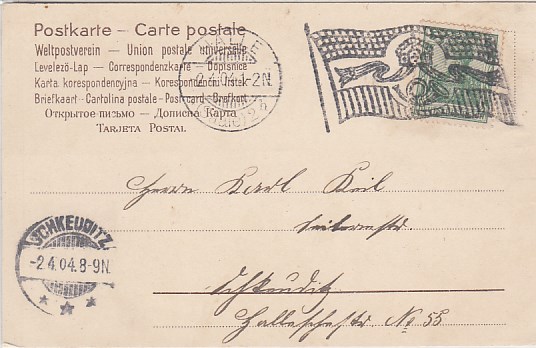 Postkarte — Carte postale
Weltpostverein — Union postale universelle
Levelező-Lap — Correspondenzkarte — Dopisnice
Karta korespondencyjna — Korespondenční lístek
Briefkaart — Cartolina postale — Post card — Brefkort
Открытое письмо — Дописна Карта
Tarjeta Postal
HALLE
2.4.04.1-2N.
(Saale) 2
Herrn Karl Keil
SCHKEUDITZ
-2.4.04.8-9N.
* * *
Schkeuditz
Hallesche str No 55